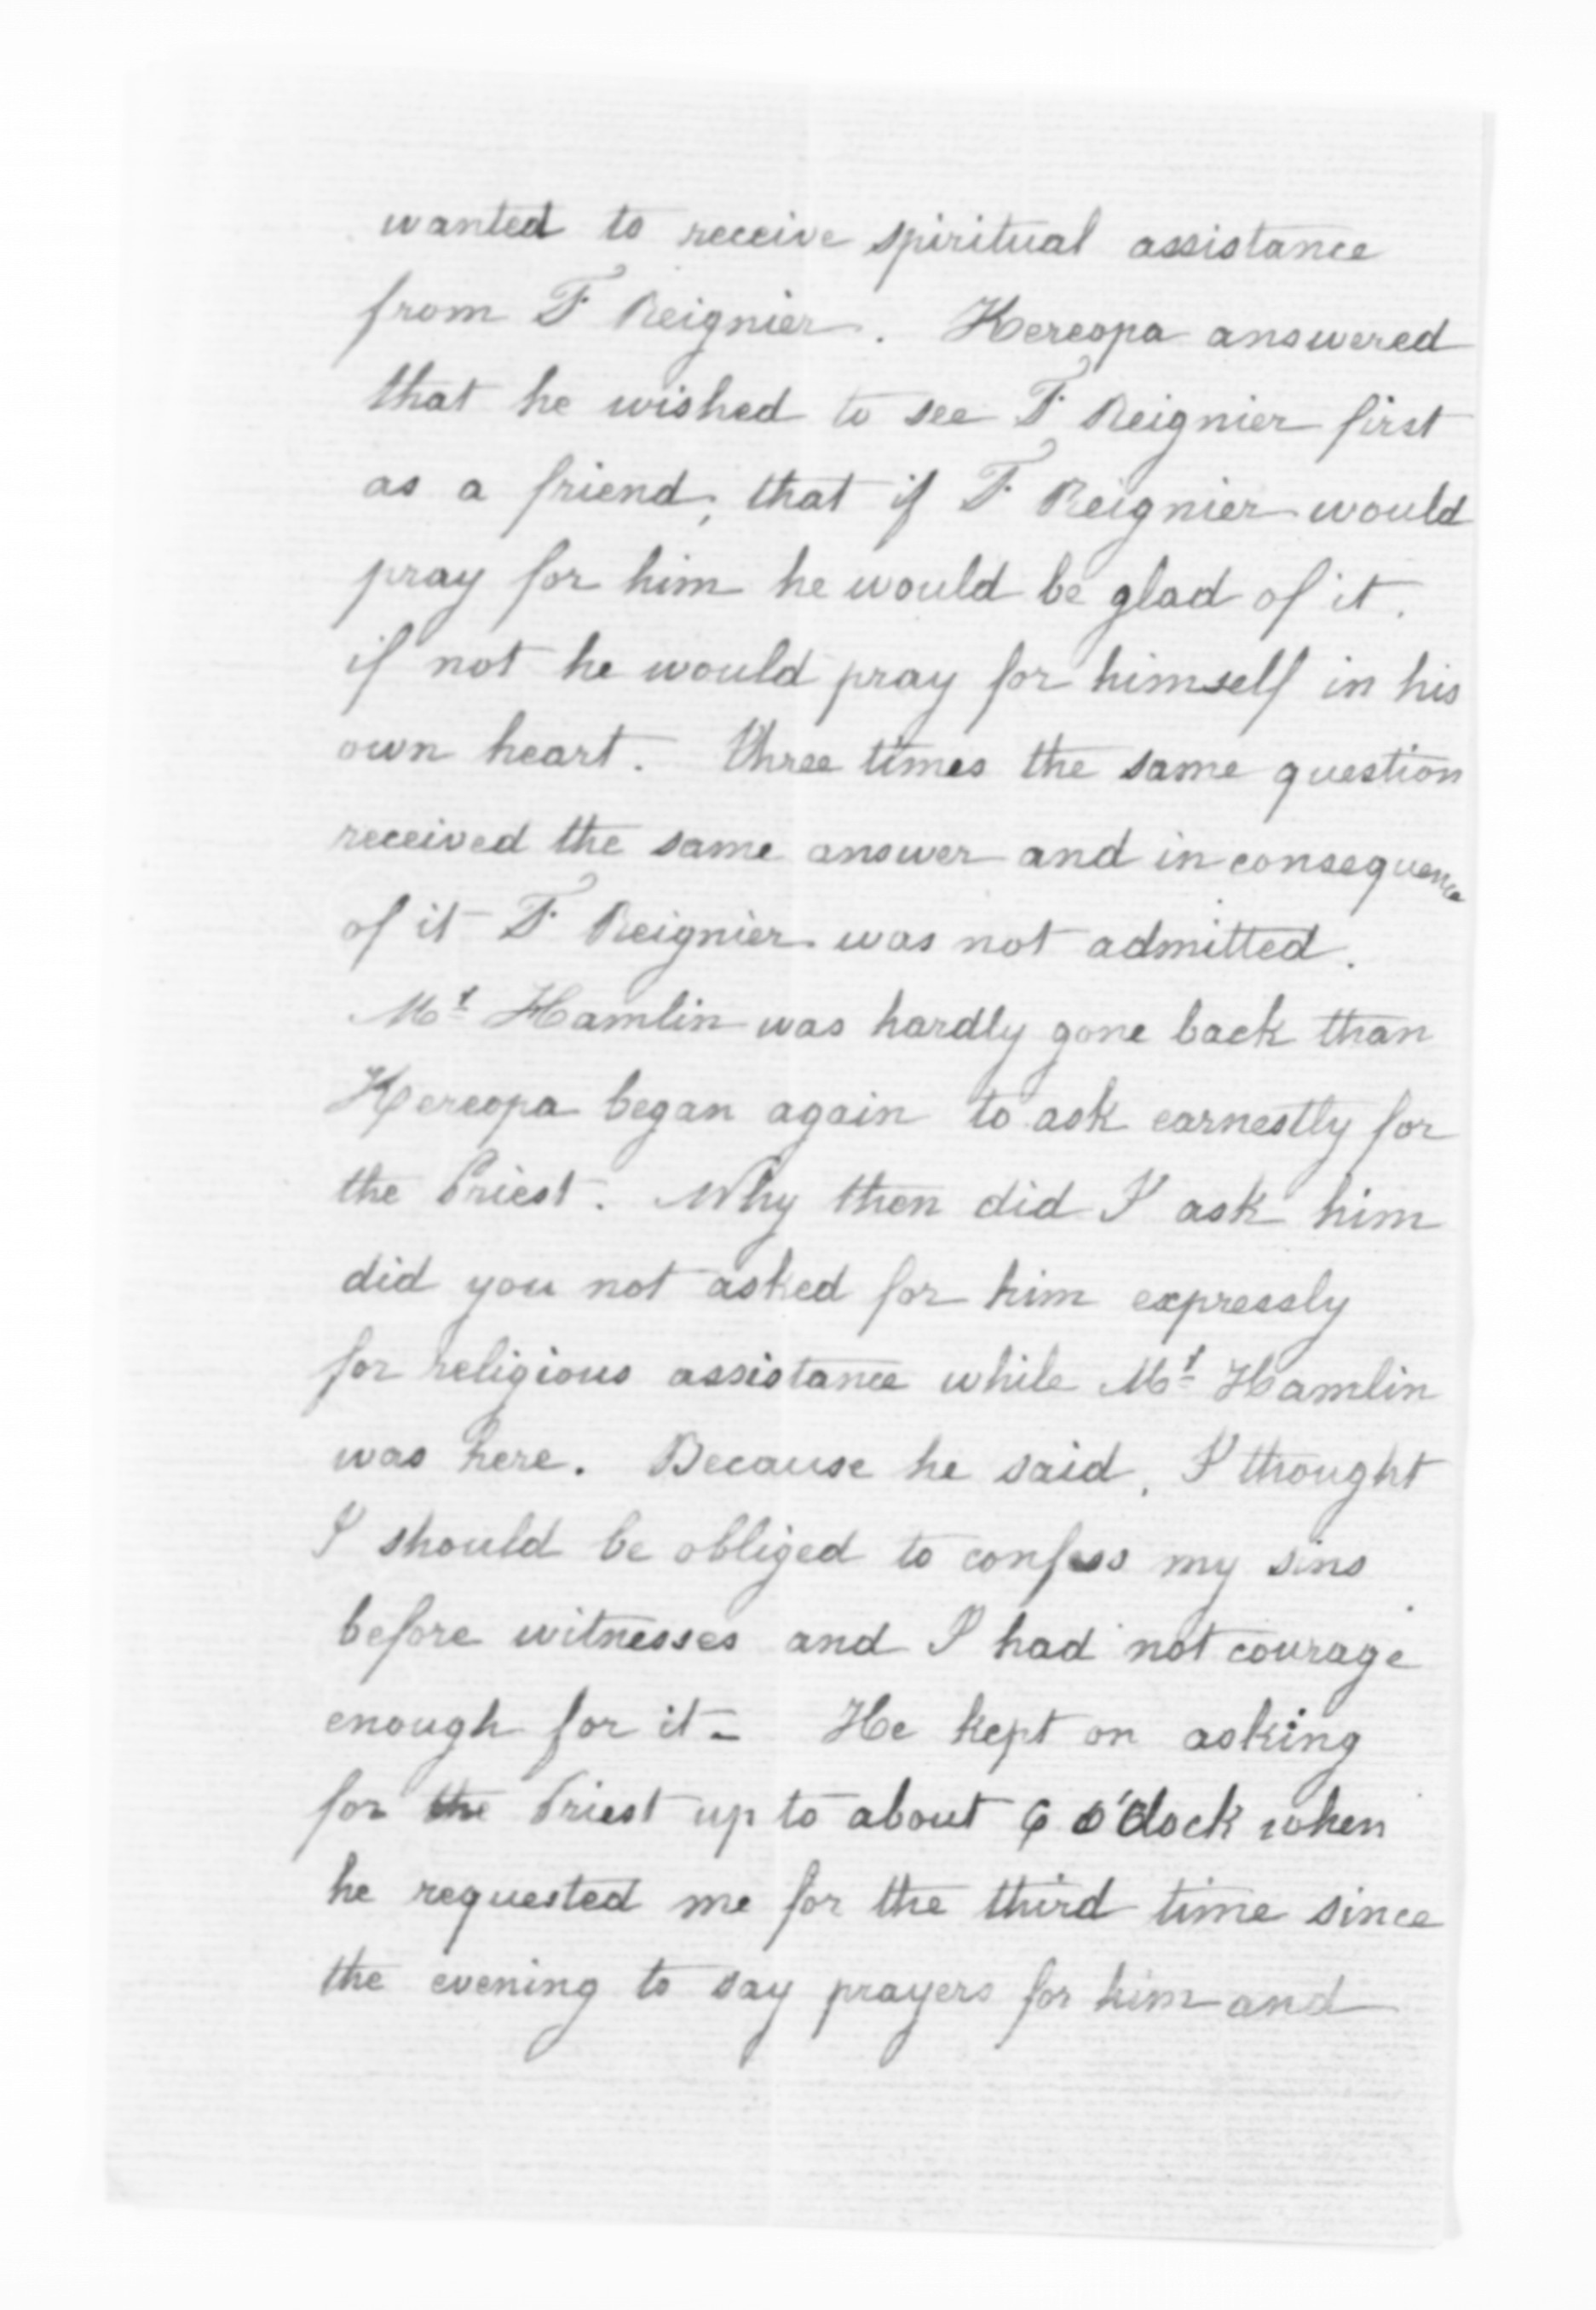 wanted to receive spiritual assistance
from F. Reignier. Kereopa answered
that he wished to see F. Reignier first
as a friend; that if F. Reignier would
pray for him he would be glad of it.
if not he would pray for himself in his
own heart. Three times the same question
received the same answer and in consequence
of it F. Reignier was not admitted.
Mr Hamlin was hardly gone back than
Kereopa began again to ask earnestly for
the Priest. Why then did I ask him
did you not asked for him expressly
for religious assistance while Mr Hamlin
was here. Because he said, I thought
I should be obliged to confess my sins
before witnesses and I had not courage
enough for it - He kept on asking
for the Priest up to about 6 o'clock when
he requested me for the third time since
the evening to say prayers for him and